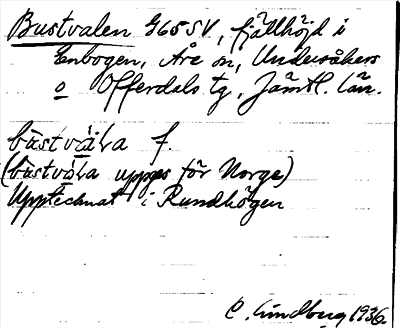 Bustvalen G65SV, fjällhöjd i
Enbogen, Åre sn, Undersåkers
o Offerdals tg, Jämtl. län.
bu̇stvä̱la f.
(bu̇stvå̱la uppges för Norge)
Upptecknat i Rundhögen
C. Lindberg 1936.